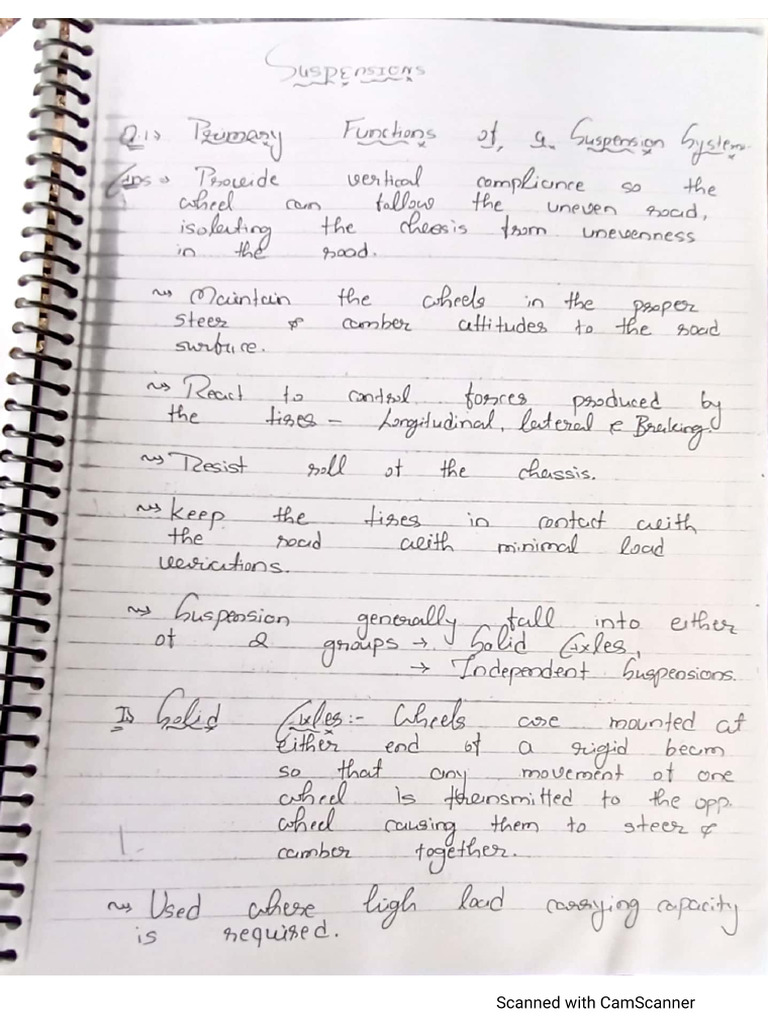 Suspensions
Q.1> Primary Functions of a Suspension System.
Ans → Provide vertical compliance so the
wheel can follow the uneven road,
isolating the chessis from unevenness
in the road.
~> Maintain the wheels in the proper
steer & camber attitudes to the road
surface.
~> React to control forces produced by
the tires - Longitudinal, lateral & Braking.
~> Resist roll of the chassis.
~> Keep the tires in contact with
the road with minimal load
variations.
~> Suspension generally fall into either
of 2 groups → Solid Axles,
→ Independent Suspensions.
I> Solid Axles:- Wheels are mounted at
either end of a rigid beam
so that any movement of one
wheel is transmitted to the opp.
wheel causing them to steer &
camber together.
~> Used where high load carrying capacity
is required.
Scanned with CamScanner